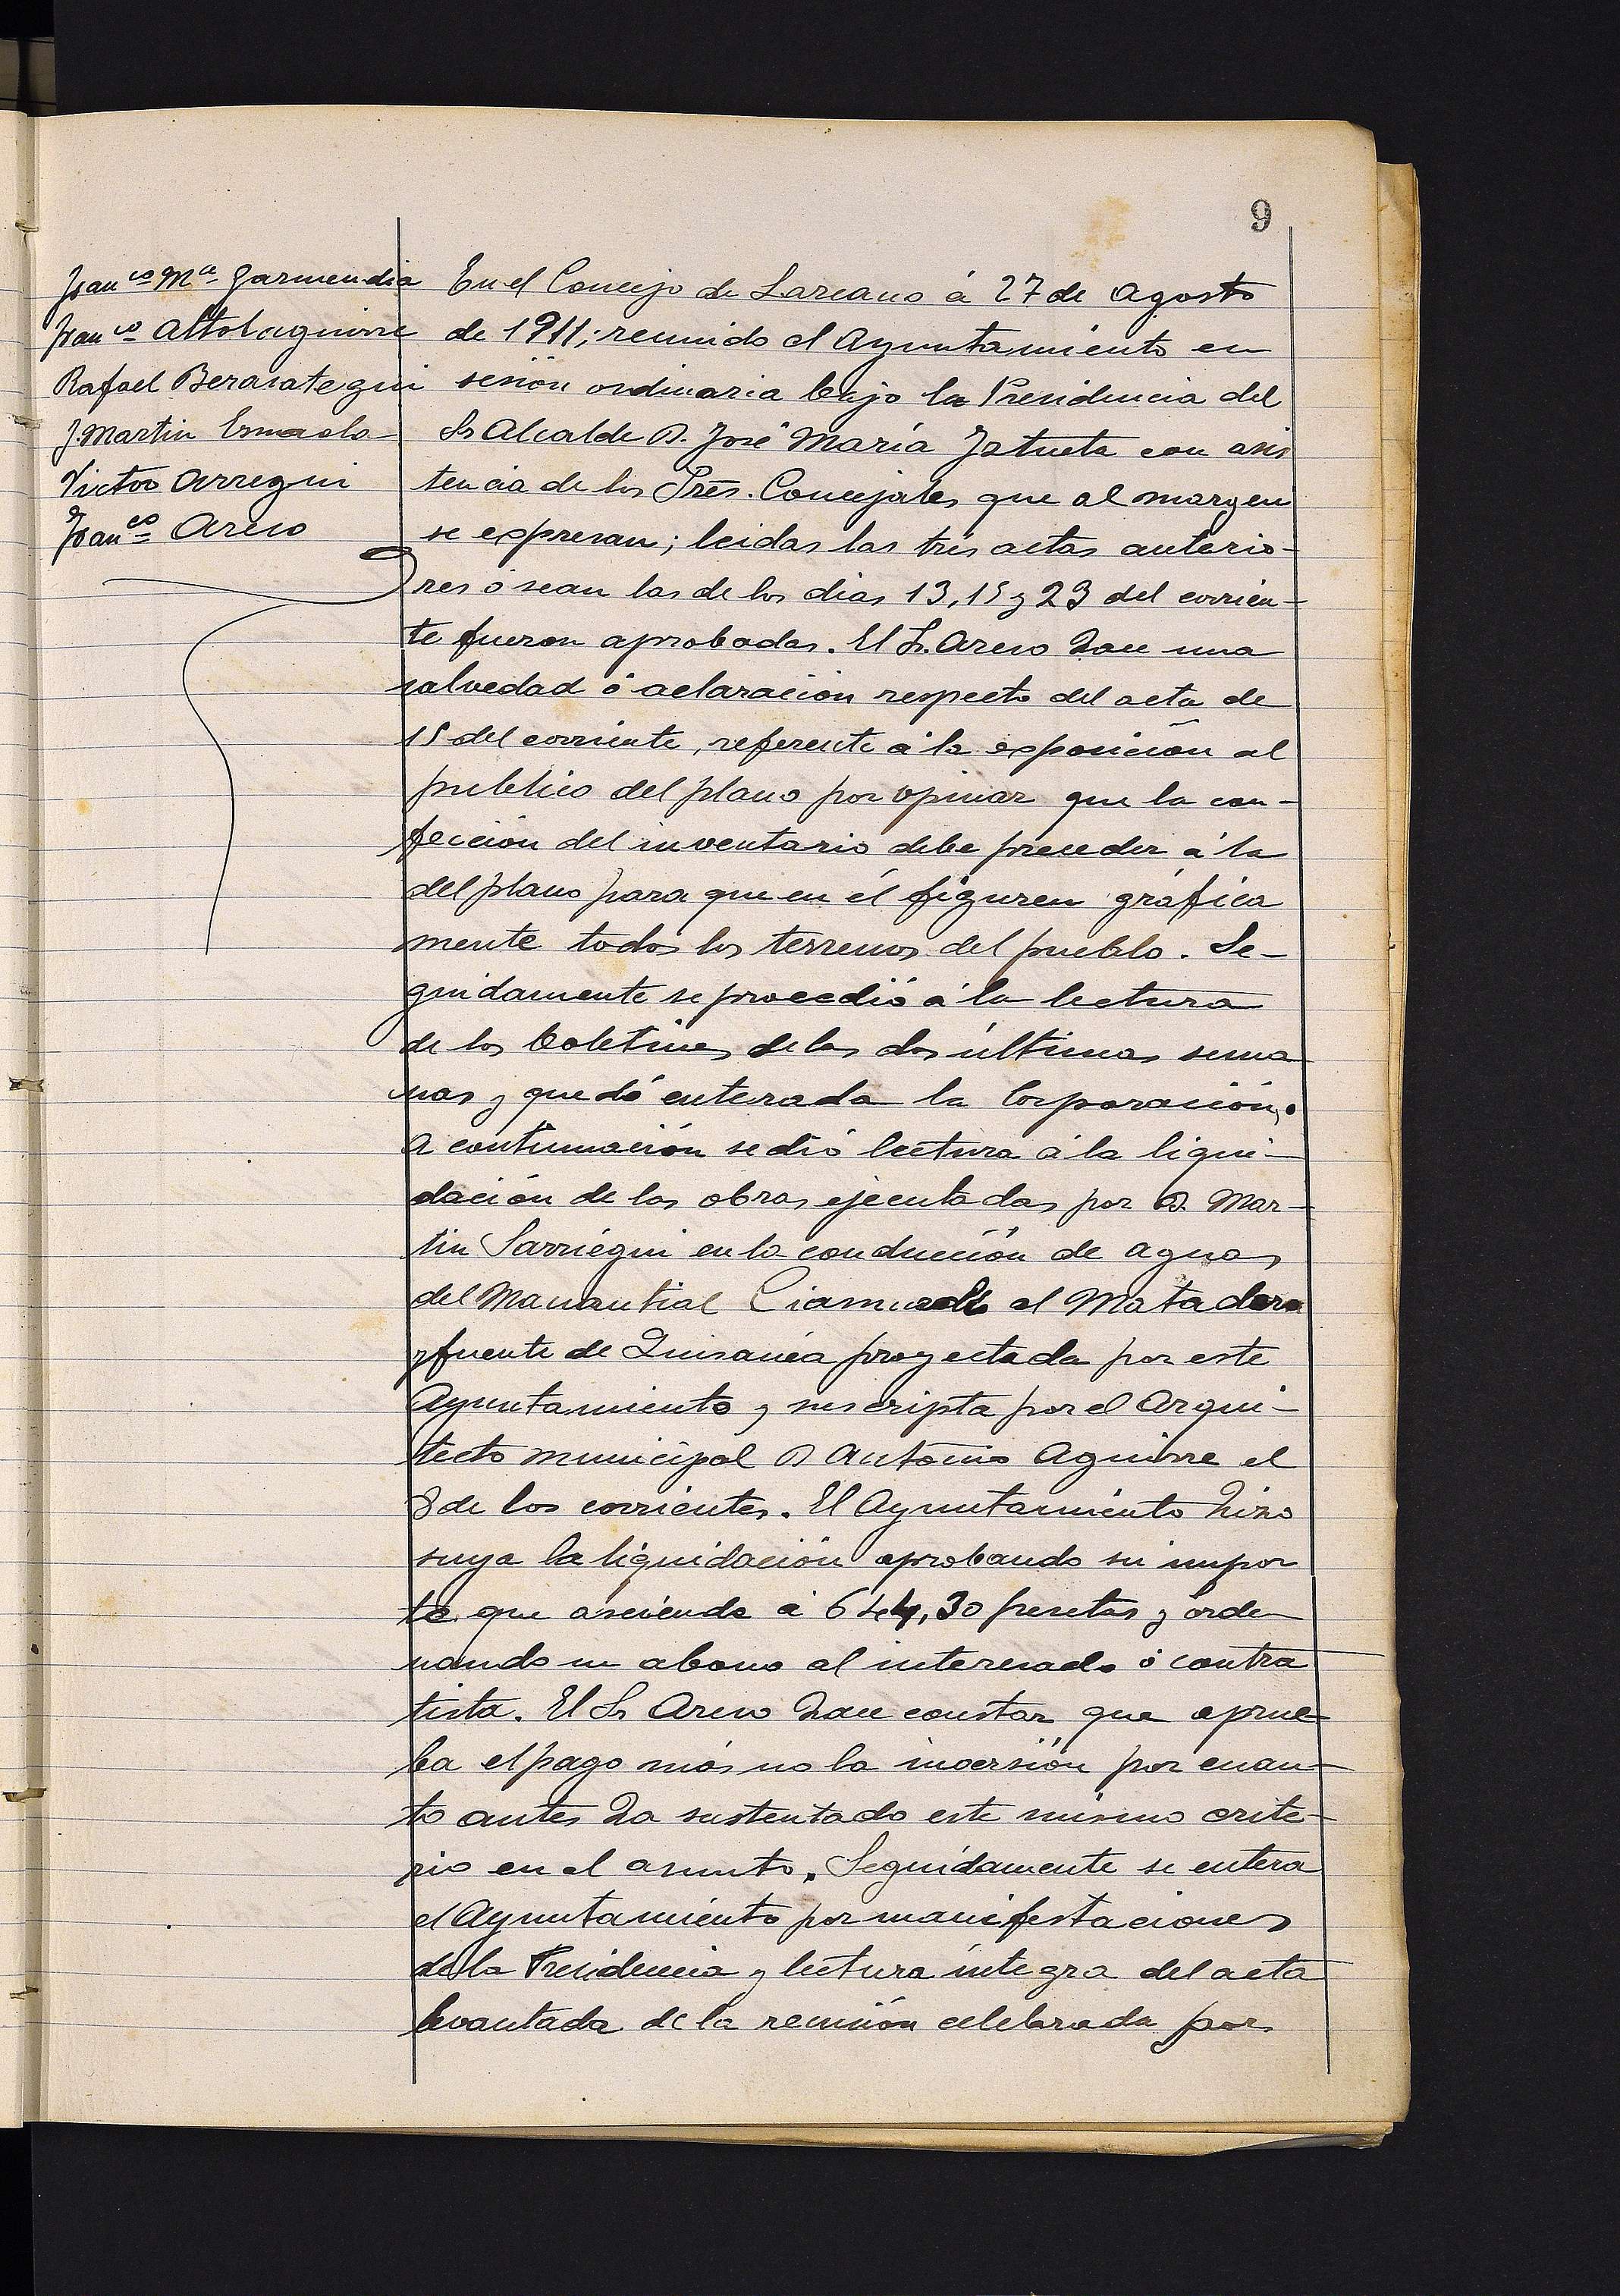 9
Franco Ma Garmendia
Franco Altolaguirre
Rafael Berasategui
J. Martin
Victor Arregui
Franco Areso
En el Concejo de Lazcano á 27 de Agosto
de 1911; reunido el Ayuntamiento en
sesión ordinaria bajo la Presidencia del
Sr Alcalde D. José María con asis
tencia de los Sres. Concejales que al margen
se expresan; leidas las tres actas anterio-
res ó sean las de los dias 13, 15 y 23 del corrien-
te fueron aprobadas. El Sr. Areso hace una
salvedad ó aclaración respecto del acta de
15 del corriente, referente á la exposición al
publico del plano por opinar que la con-
fección del inventario debe preceder á la
del plano para que en él figuren gráfica
mente todos los terrenos del pueblo. Se-
guidamente se procedió á la lectura
de los Boletines de las dos últimas sema
nas y quedó enterada la Corporación.
A continuación se dió lectura á la liqui-
dación de las obras ejecutadas por D. Mar-
tin Sarriegui en la conducción de aguas
del Manantial al Matadero
y fuente de proyectada por este
Ayuntamiento y suscripta por el Arqui-
tecto municipal D Antonio Aguirre el
8 de los corrientes. El Ayuntamiento hizo
suya la liquidación aprobando su impor
te que asciende á 644,30 pesetas y orde
nando su abono al interesado ó contra
tista. El Sr Areso hace constar que aprue-
ba el pago más no la inversión por cuan-
to antes ha sustentado este mismo crite-
rio en el asunto. Seguidamente se entera
el Ayuntamiento por manifestaciones
de la Presidencia y lectura integra del acta
levantada de la reunión celebrada por